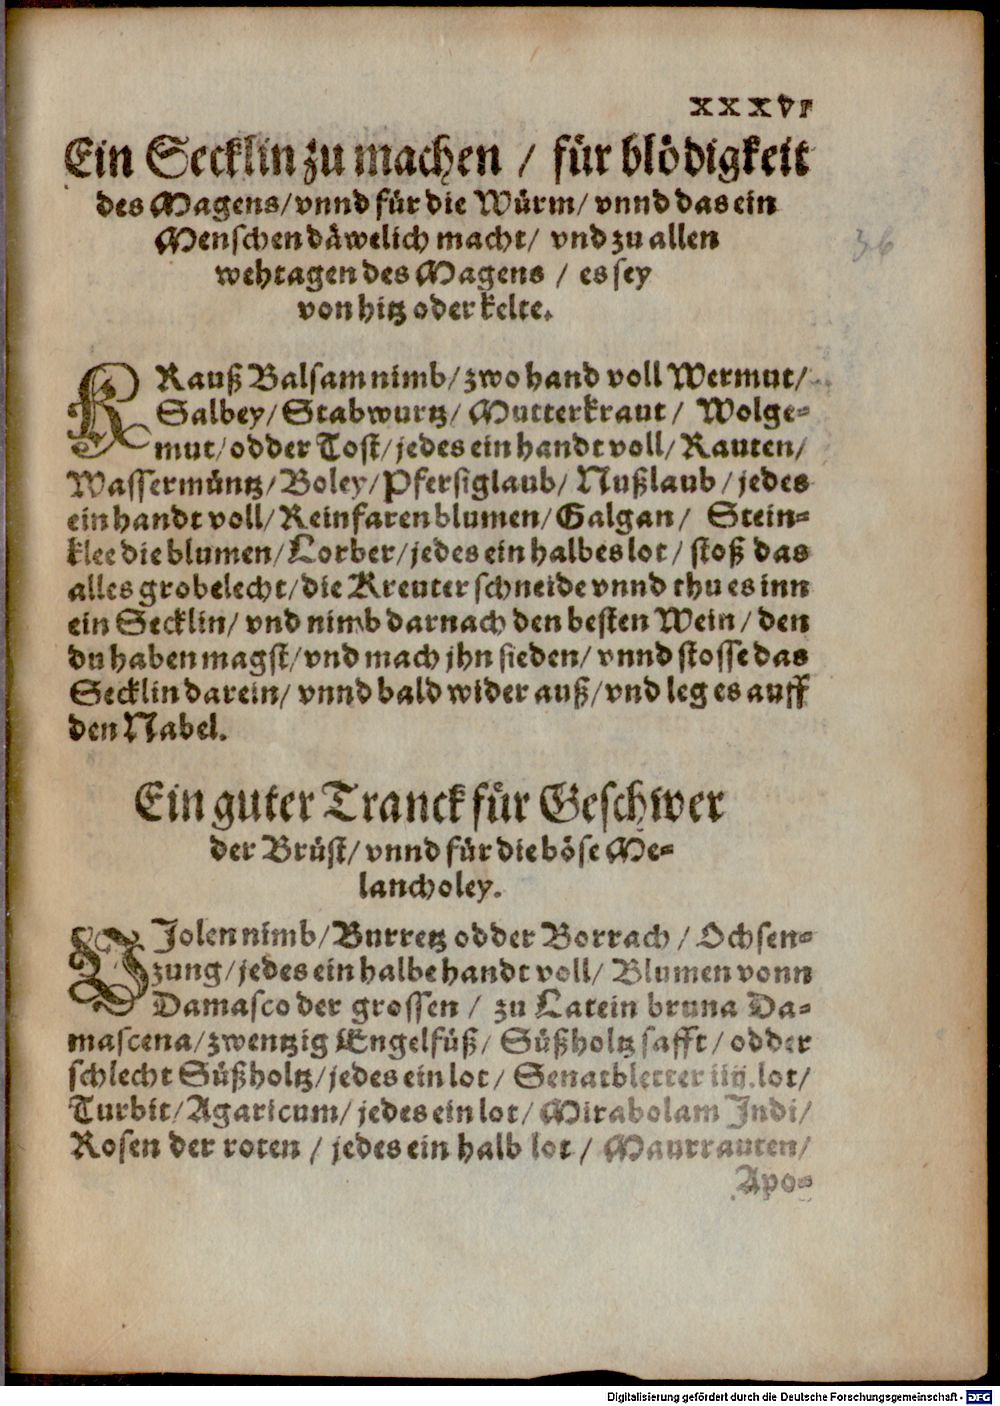 XXXVI
Ein Secklin zu machen / für blödigkeit
des Magens/ vnnd für die Würm/ vnnd das ein
Menschen däwelich macht/ vnd zu allen
wehtagen des Magens / es sey
von hitz oder kelte.
36
KRauß Balsam nimb/ zwo hand voll Wermut/
Salbey/ Stabwurtz/ Mutterkraut/ Wolge=
mut/ odder Tost/ jedes ein handt voll/ Rauten/
Wassermüntz/ Boley/ Pfersiglaub/ Nußlaub/ jedes
ein handt voll/ Reinfaren blumen/ Galgan/ Stein=
klee die blumen/ Lorber/ jedes ein halbes lot/ stoß das
alles grobelecht/ die Kreuter schneide vnnd thu es inn
ein Secklin/ vnd nimb darnach den besten Wein/ den
du haben magst/ vnd mach jhn sieden/ vnnd stosse das
Secklin darein/ vnnd bald wider auß/ vnd leg es auff
den Nabel.
Ein guter Tranck für Geschwer
der Brüst/ vnnd für die böse Me=
lancholey.
VIolen nimb/ Burretz odder Borrach / Ochsen=
zung/ jedes ein halbe handt voll/ Blumen vonn
Damasco der grossen / zu Latein bruna Da=
mascena/ zwentzig Engelfüß/ Süßholtz safft/ odder
schlecht Süßholtz/ jedes ein lot/ Senatbletter iiij. lot/
Turbit/ Agaricum/ jedes ein lot/ Mirabolam Indi/
Rosen der roten / jedes ein halb lot / Maurrauten/
Apo=
Digitalisierung gefördert durch die Deutsche Forschungsgemeinschaft - DFG